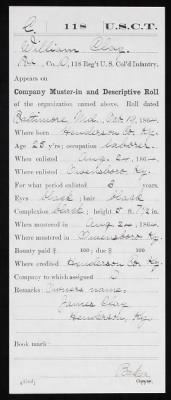 C | 118 | U.S.C.T.
William Clay
Co. C, 118 Reg't U. S. Col'd Infantry.
Appears on
Company Muster-in and Descriptive Roll
of the organization named above. Roll dated
Baltimore, Md., 19, 1864.
Where born Henderson Co. Ky.
Age 25 y'rs; occupation laborer.
When enlisted Aug. 24, 1864.
Where enlisted Owensboro Ky.
For what period enlisted 3 years.
Eyes black; hair black
Complexion black; height 5 ft. in.
When mustered in Aug. 24, 1864.
Where mustered in Owensboro Ky.
Bounty paid $ 100; due $ 100
Where credited Henderson Co. Ky.
Company to which assigned
Remarks: Owners name:
James Clay
Henderson, Ky.
Book mark:
Copyist.